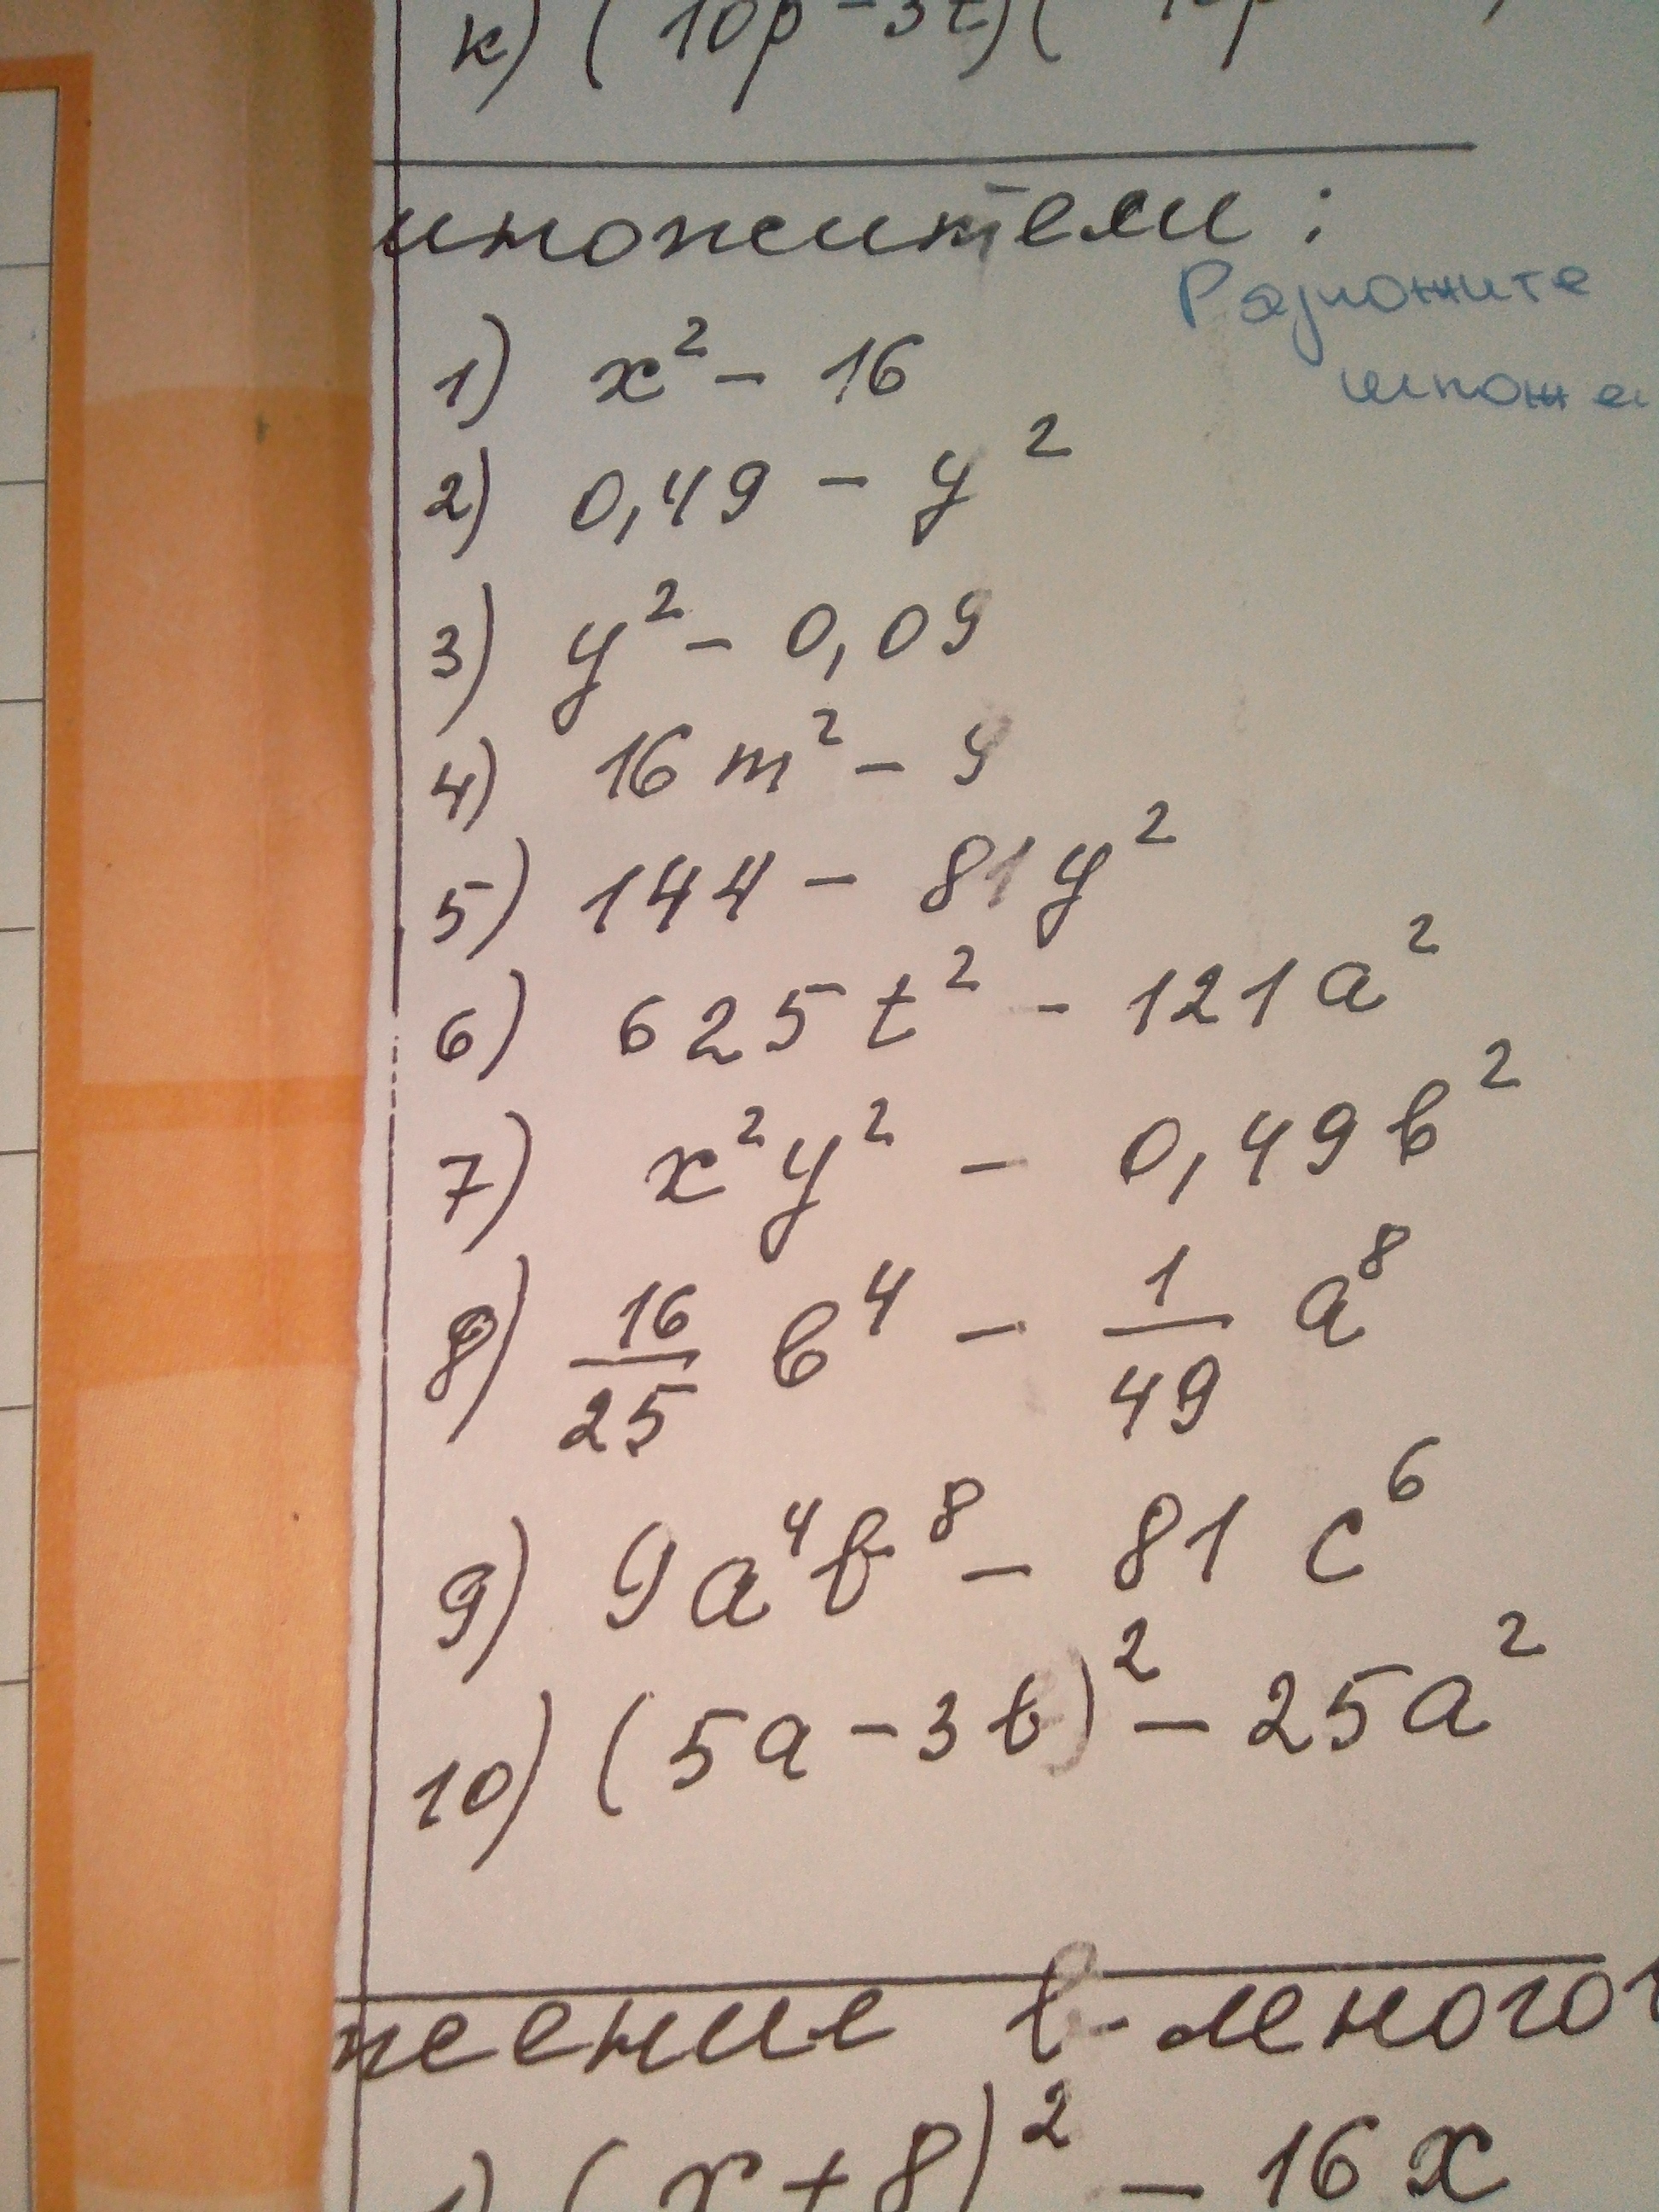 к) (10p - 3t)(
множители:
Разложите
множе
1) x² - 16
2) 0,49 - y²
3) y² - 0,09
4) 16m² - 9
5) 144 - 81y²
6) 625t² - 121a²
7) x²y² - 0,49b²
8) 16/25 b⁴ - 1/49 a⁸
9) 9a⁴b⁸ - 81c⁶
10) (5a - 3b)² - 25a²
жение в много
1) (x + 8)² - 16x